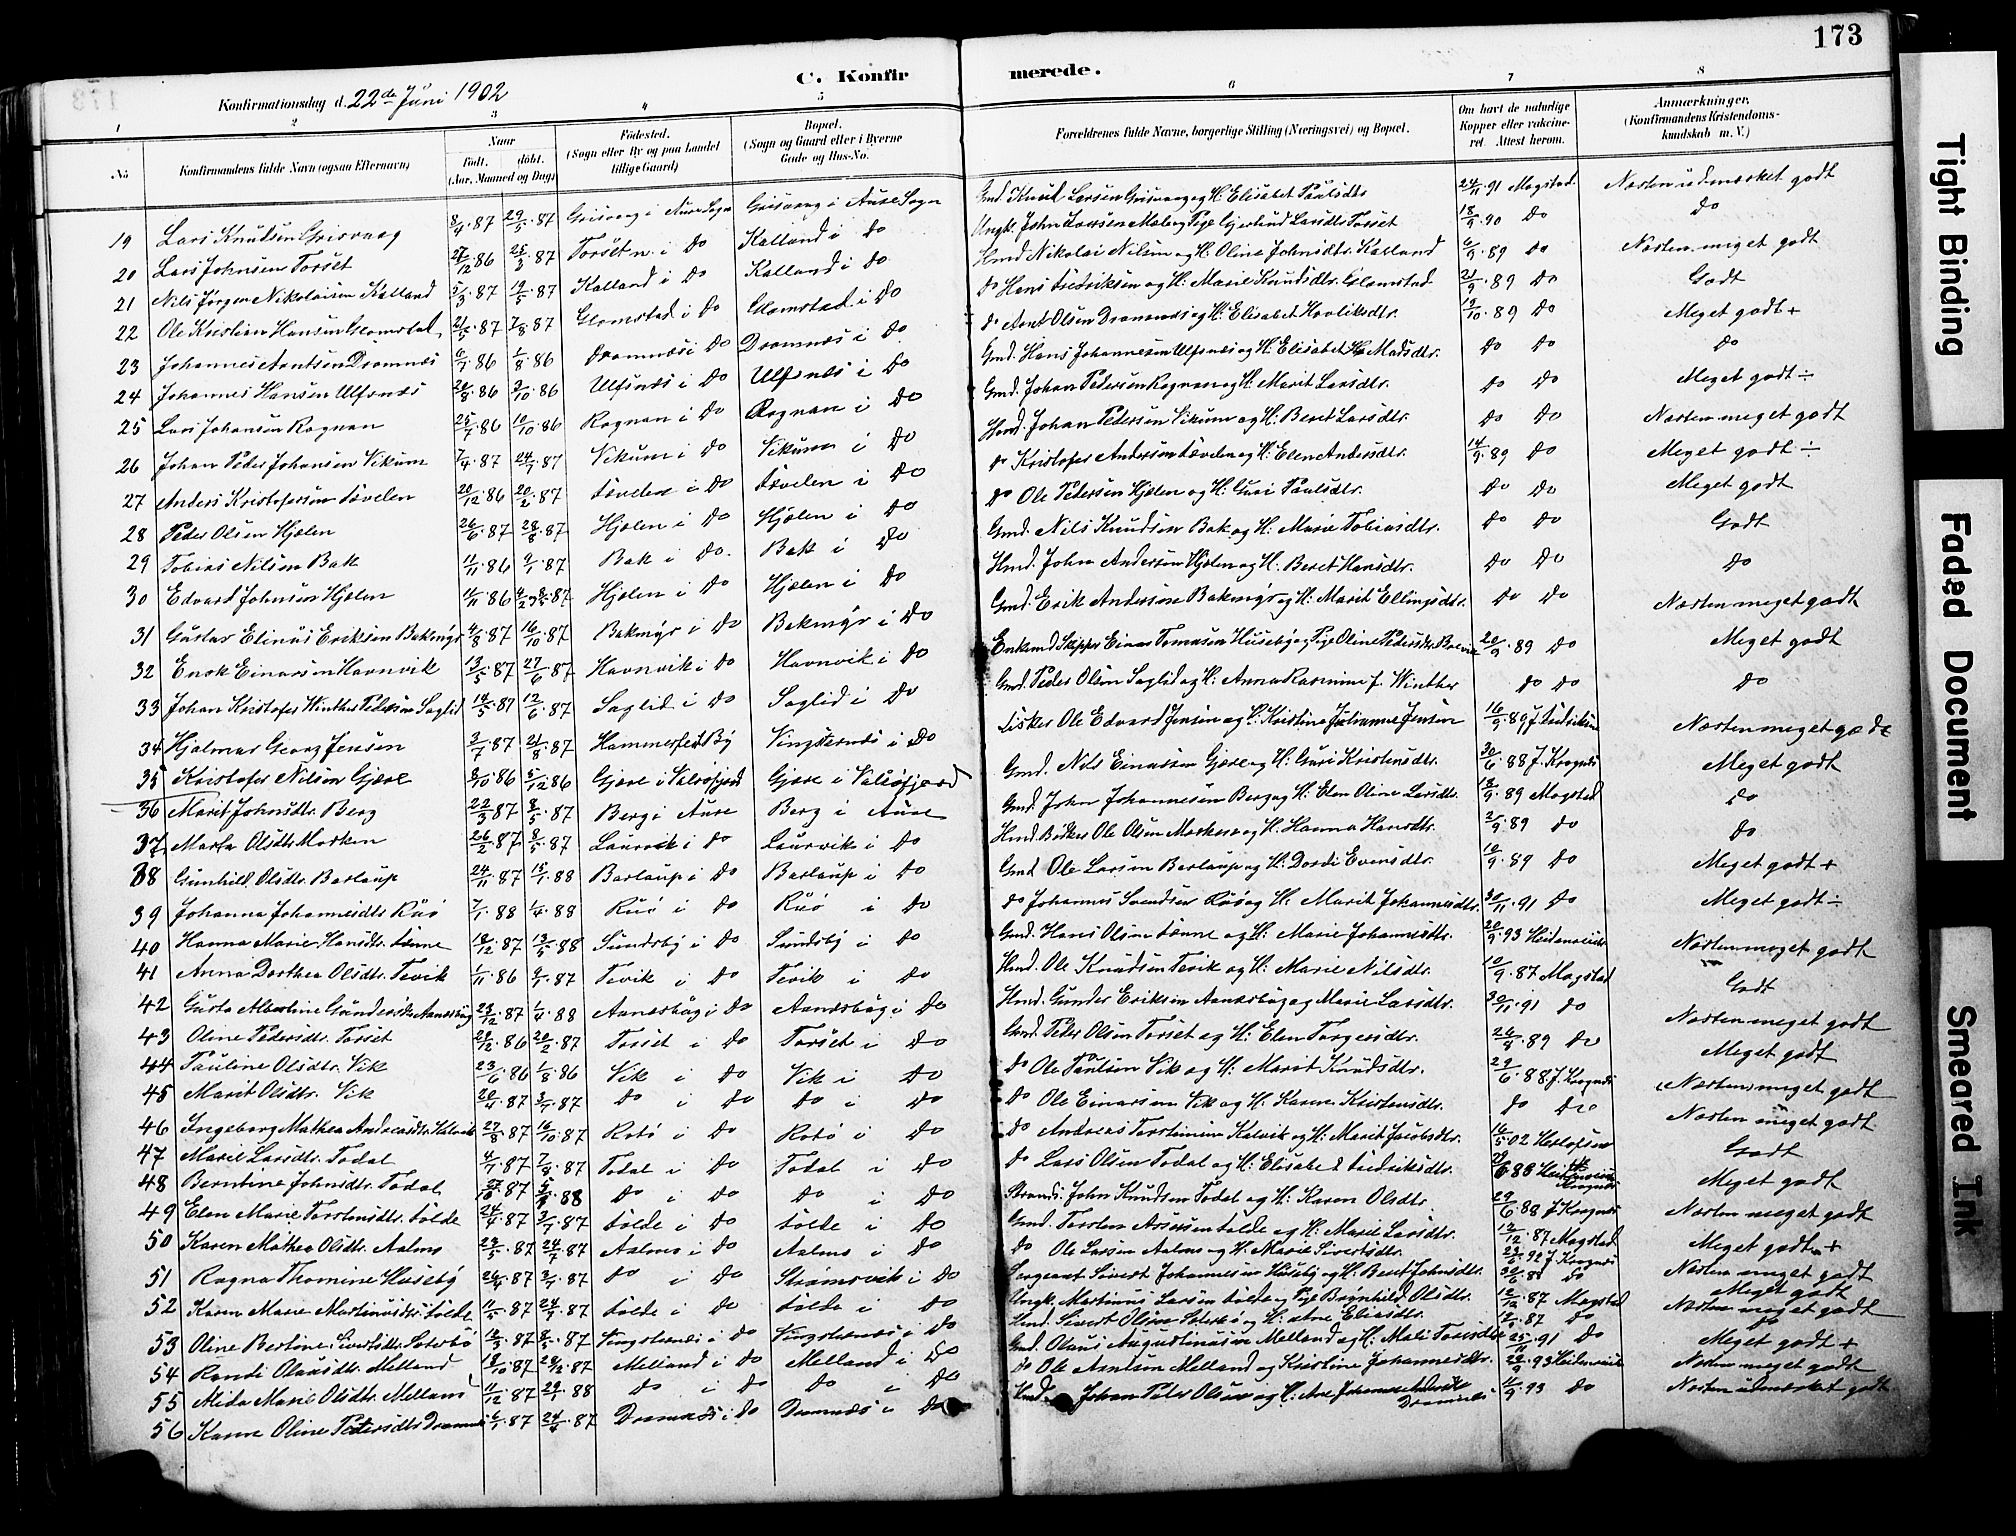 173
C. Konfirmerede.
Konfirmationsdag d. 22de Juni 1902
1 2 3 4 5 6 7 8
No
Konfirmandens fulde Navn (ogsaa Efternavn)
Naar
Födt. döbt.
(Aar, Maaned og Dag)
Födested.
(Sogn eller By og paa Landet tillige Gaard)
Bopæl.
(Sogn og Gaard eller i Byerne Gade og Hus-No.
Forældrenes fulde Navne, borgerlige Stilling (Næringsvei) og Bopæl.
Om havt de naturlige Kopper eller vaccineret. Attest herom.
Anmærkninger,
(Konfirmandens Kristendomskundskab m. V.)
19 Lars Knudsen Grisvaag 8/4.87 29/5.87 Grisvaag i Aure Sogn Grisvaag i Aure Sogn Gmd. Knud Larsen Grisvaag og H. Elisabet Paulsdtr 24/11 91 Magstad Næsten udmærket godt
20 Lars Johnsen Torset 27/12 86 25/3.87 Torset n. i Do Kalland i Do Ungk. John Larsen Pige Gjertrud Larsdtr Torset 18/9.90 Do Do
21 Nils Jørgen Nikolaisen Kalland 5/3.87 19/5.87 Kalland i Do Kalland i Do Hmd Nikolai Nilsen og H. Oline Johnsdtr. Kalland 6/9.89 Do Næsten meget godt
22 Ole Kristian Hansen Glomstad 21/5.87 7/8.87 Glomstad i Do Glomstad i Do Do Hans Fredriksen og H. Marie Knudsdtr. Glomstad 21/9.89 Do Godt
23 Johannes Arntsen Dromnes 6/7.86 1/8.86 Dromnes i Do Dromnes i Do Do Arnt Olsen Dromnes og H. Elisabet Hovliksdtr. 19/10.89 Do Meget godt +
24 Johannes Hansen Ulfsnes 20/8.86 3/10.86 Ulfsnes i Do Ulfsnes i Do Gmd. Hans Johannesen Ulfsnes og H. Elisabet Madsdtr. Do Do Do
25 Lars Johansen Rognan 25/7.86 10/10.86 Rognan i Do Rognan i Do Gmd. Johan Pedersen Rognan og H. Marit Larsdtr. Do Do Meget godt ÷
26 Johan Peder Johansen Vikum 7/4.87 24/7.87 Vikum i Do Vikum i Do Hmd. Johan Pedersen Vikum og H. Beret Larsdtr. Do Do Næsten meget godt
27 Anders Kristofersen Løvelen 20/12.86 20/2.87 Løvelen i Do Løvelen i Do Do Kristofer Andersen Løvelen og H. Elen Andersdtr. 14/9.89 Do Meget godt ÷
28 Peder Olsen Hjelen 26/6.87 28/8.87 Hjelen i Do Hjelen i Do Do Ole Pedersen Hjelen og H. Guri Paulsdtr. Do Do Meget godt
29 Tobias Nilsen Bak 11/11.86 9/1.87 Bak i Do Bak i Do Gmd. Nils Knudsen Bak og H. Marie Tobiasdtr. Do Do Godt
30 Edvard Johnsen Hjelen Hjelen i Do Hjelen i Do Hmd. John Andersen Hjelen og H. Beret Hansdtr. Do Do Do
31 Gustav Elinus Eriksen Bakmyr 4/8.87 16/10.87 Bakmyr i Do Bakmyr i Do Gmd. Erik Andersen Bakmyr og H. Marit Ellingsdtr. Do Do Næsten meget godt
32 Enok Einarsen Havnvik 13/5.87 27/6.87 Havnvik i Do Havnvik i Do Enkemd Skipper Einar Tomasen Huseby og Pige Oline Pedersdtr 20/9.89 Do Meget godt
33 Johan Kristofer Winther Pedersen Saglid 14/5.87 12/6.87 Saglid i Do Saglid i Do Gmd. Peder Olsen Saglid og H. Anna Rasmine f. Winther Do Do Do
34 Hjalmar Georg Jensen 3/7.87 21/8.87 Hammerfest By Vingsternes i Do Fisker Ole Edvard Jensen og H. Kristine Julianne Jensen 16/9.89 J. Fredriksen Næsten meget godt
35 Kristofer Nilsen Gjere 9/10.86 5/12 86 Gjere i Valsøfjord Gjere i Valsøfjord Gmd. Nils Einarsen Gjere og H. Guri Kristensdtr. 30/6.88 J. Krognes Meget godt
36 Marit Johnsdtr. Berg 22/3 87 8/5.87 Berg i Aure Berg i Aure Gmd. John Johannesen Berg og H. Elen Oline Larsdtr. 18/9.89 Magstad Do
37 Marta Olsdtr Morken 26/2.87 8/5.87 Laurvik i Do Laurvik i Do Hmd. Ole Olsen Morken og H. Hanna Hansdtr. 2/9.89 Do Do
38 Gunhild Olsdtr. Barlaup 24/11.87 15/1.88 Barlaup i Do Barlaup i Do Gmd Ole Larsen Barlaup og H. Dordi Evensdtr. 10/9.89 Do Meget godt +
39 Johanna Johannesdtr Ruø 7/1.88 1/4.88 Ruø i Do Ruø i Do Do Johannes Svendsen Ruø og H. Marit Johannesdtr. 30/11.91 Do Meget godt ÷
40 Hanna Marie Hansdtr. Lønne 18/12.87 13/5 88 Sundsby i Do Sundsby i Do Gmd. Hans Olsen Lønne og H. Marie Johannesdtr. 20/9.93 Næsten meget godt
41 Anna Dorthea Olsdtr. Tevik 1/11.86 9/1.87 Tevik i Do Tevik i Do Hmd. Ole Knudsen Tevik og H. Marie Nilsdtr. 10/9.87 Magstad Godt
42 Gusta Albertine Gundersdtr Aanesbug 23/12.87 1/4.88 Aanesbug i Do Aanesbug i Do Hmd. Gunder Eriksen Aanesbug og Marie Larsdtr. 30/11.91 Do Næsten meget godt
43 Oline Pedersdtr. Torset 28/12.86 20/2.87 Torset i Do Torset i Do Gmd. Peder Olsen Torset og H. Elen Torgersdtr. 26/8.89 Do Meget godt
44 Pauline Olsdtr. Vik 23/6.86 1/8.86 Vik i Do Vik i Do Do Ole Paulsen Vik og H. Marit Knudsdtr. 29/6.88 J. Krognes Næsten meget godt
45 Marit Olsdtr. Vik 20/4.87 3/7.87 Do i Do Do i Do Do Ole Einarsen Vik og H. Karen Kristensdtr. Do Do Næsten meget godt
46 Ingeborg Mathea Andreasdtr Kalvik 27/8.87 16/10.87 Rotø i Do Rotø i Do Do Andreas Torstensen Kalvik og H. Marit Jacobsdtr. 16/5.02 Herlofsen Godt
47 Marie Larsdtr. Todal 4/7.87 7/8.87 Todal i Do Todal i Do Do Lars Olsen Todal og H. Elisabet Fredriksdtr. Meget godt
48 Berntine Johnsdtr. Todal 27/10.87 Do i Do Do i Do Strands. John Knudsen Todal og H. Karen Olsdtr 29/6.88 J Krognes Næsten meget godt
49 Elen Marie Torstensdtr. Lølde 24/4.87 3/7.87 Lølde i Do Lølde i Do Gmd. Torsten Assersen Lølde og H. Marie Larsdtr. 12/12.87 Magstad Meget godt +
50 Karen Mathea Olsdtr. Aalmo 23/5.87 24/7.87 Aalmo i Do Aalmo i Do Do Ole Larsen Aalmo og H. Marie Sivertsdtr. J. Krognes Næsten meget godt
51 Ragna Thomine Huseby 26/4.87 3/7.87 Do i Do Strømsvik i Do Sergeant Sivert Johannesen Huseby og H. Beret Johnsdtr. Do Meget godt
52 Karen Marie Martinusdtr Lølde 11/5.87 24/7.87 Lølde i Do Lølde i Do Ungk. Martinus Larsen Lølde og Pige Brynhild Olsdtr. 12/12.87 Magstad Næsten meget godt
53 Oline Bertine Sivertsdtr Soterbø 87 87 Vingsternes i Do Vingsternes i Do Hmd. Sivert Olsen og H. Ane Eliasdtr. 87 Do Do
54 Randi Olausdtr. Melland 19/10.87 87 Melland i Do Melland i Do Gmd. Olaus Augustinusen Melland og H. Mali Toresdtr 25/11.91 Do Meget godt +
55 Mida Marie Olsdtr. Melland 11/12.87 29/1.88 Do i Do Do i Do Do Ole Arntsen Melland og Kristine Johannesdtr. 22/9.93 Næsten meget godt
56 Karen Oline Pedersdtr Dromnes 6/1.87 24/4.87 Dromnes i Do Dromnes i Do Hmd. Johan Peder Olsen og H. Ane Johanna Andersdtr Dromnes 11/9.93 Do Næsten udmærket godt
Tight Binding
Faded Document
Smeared Ink